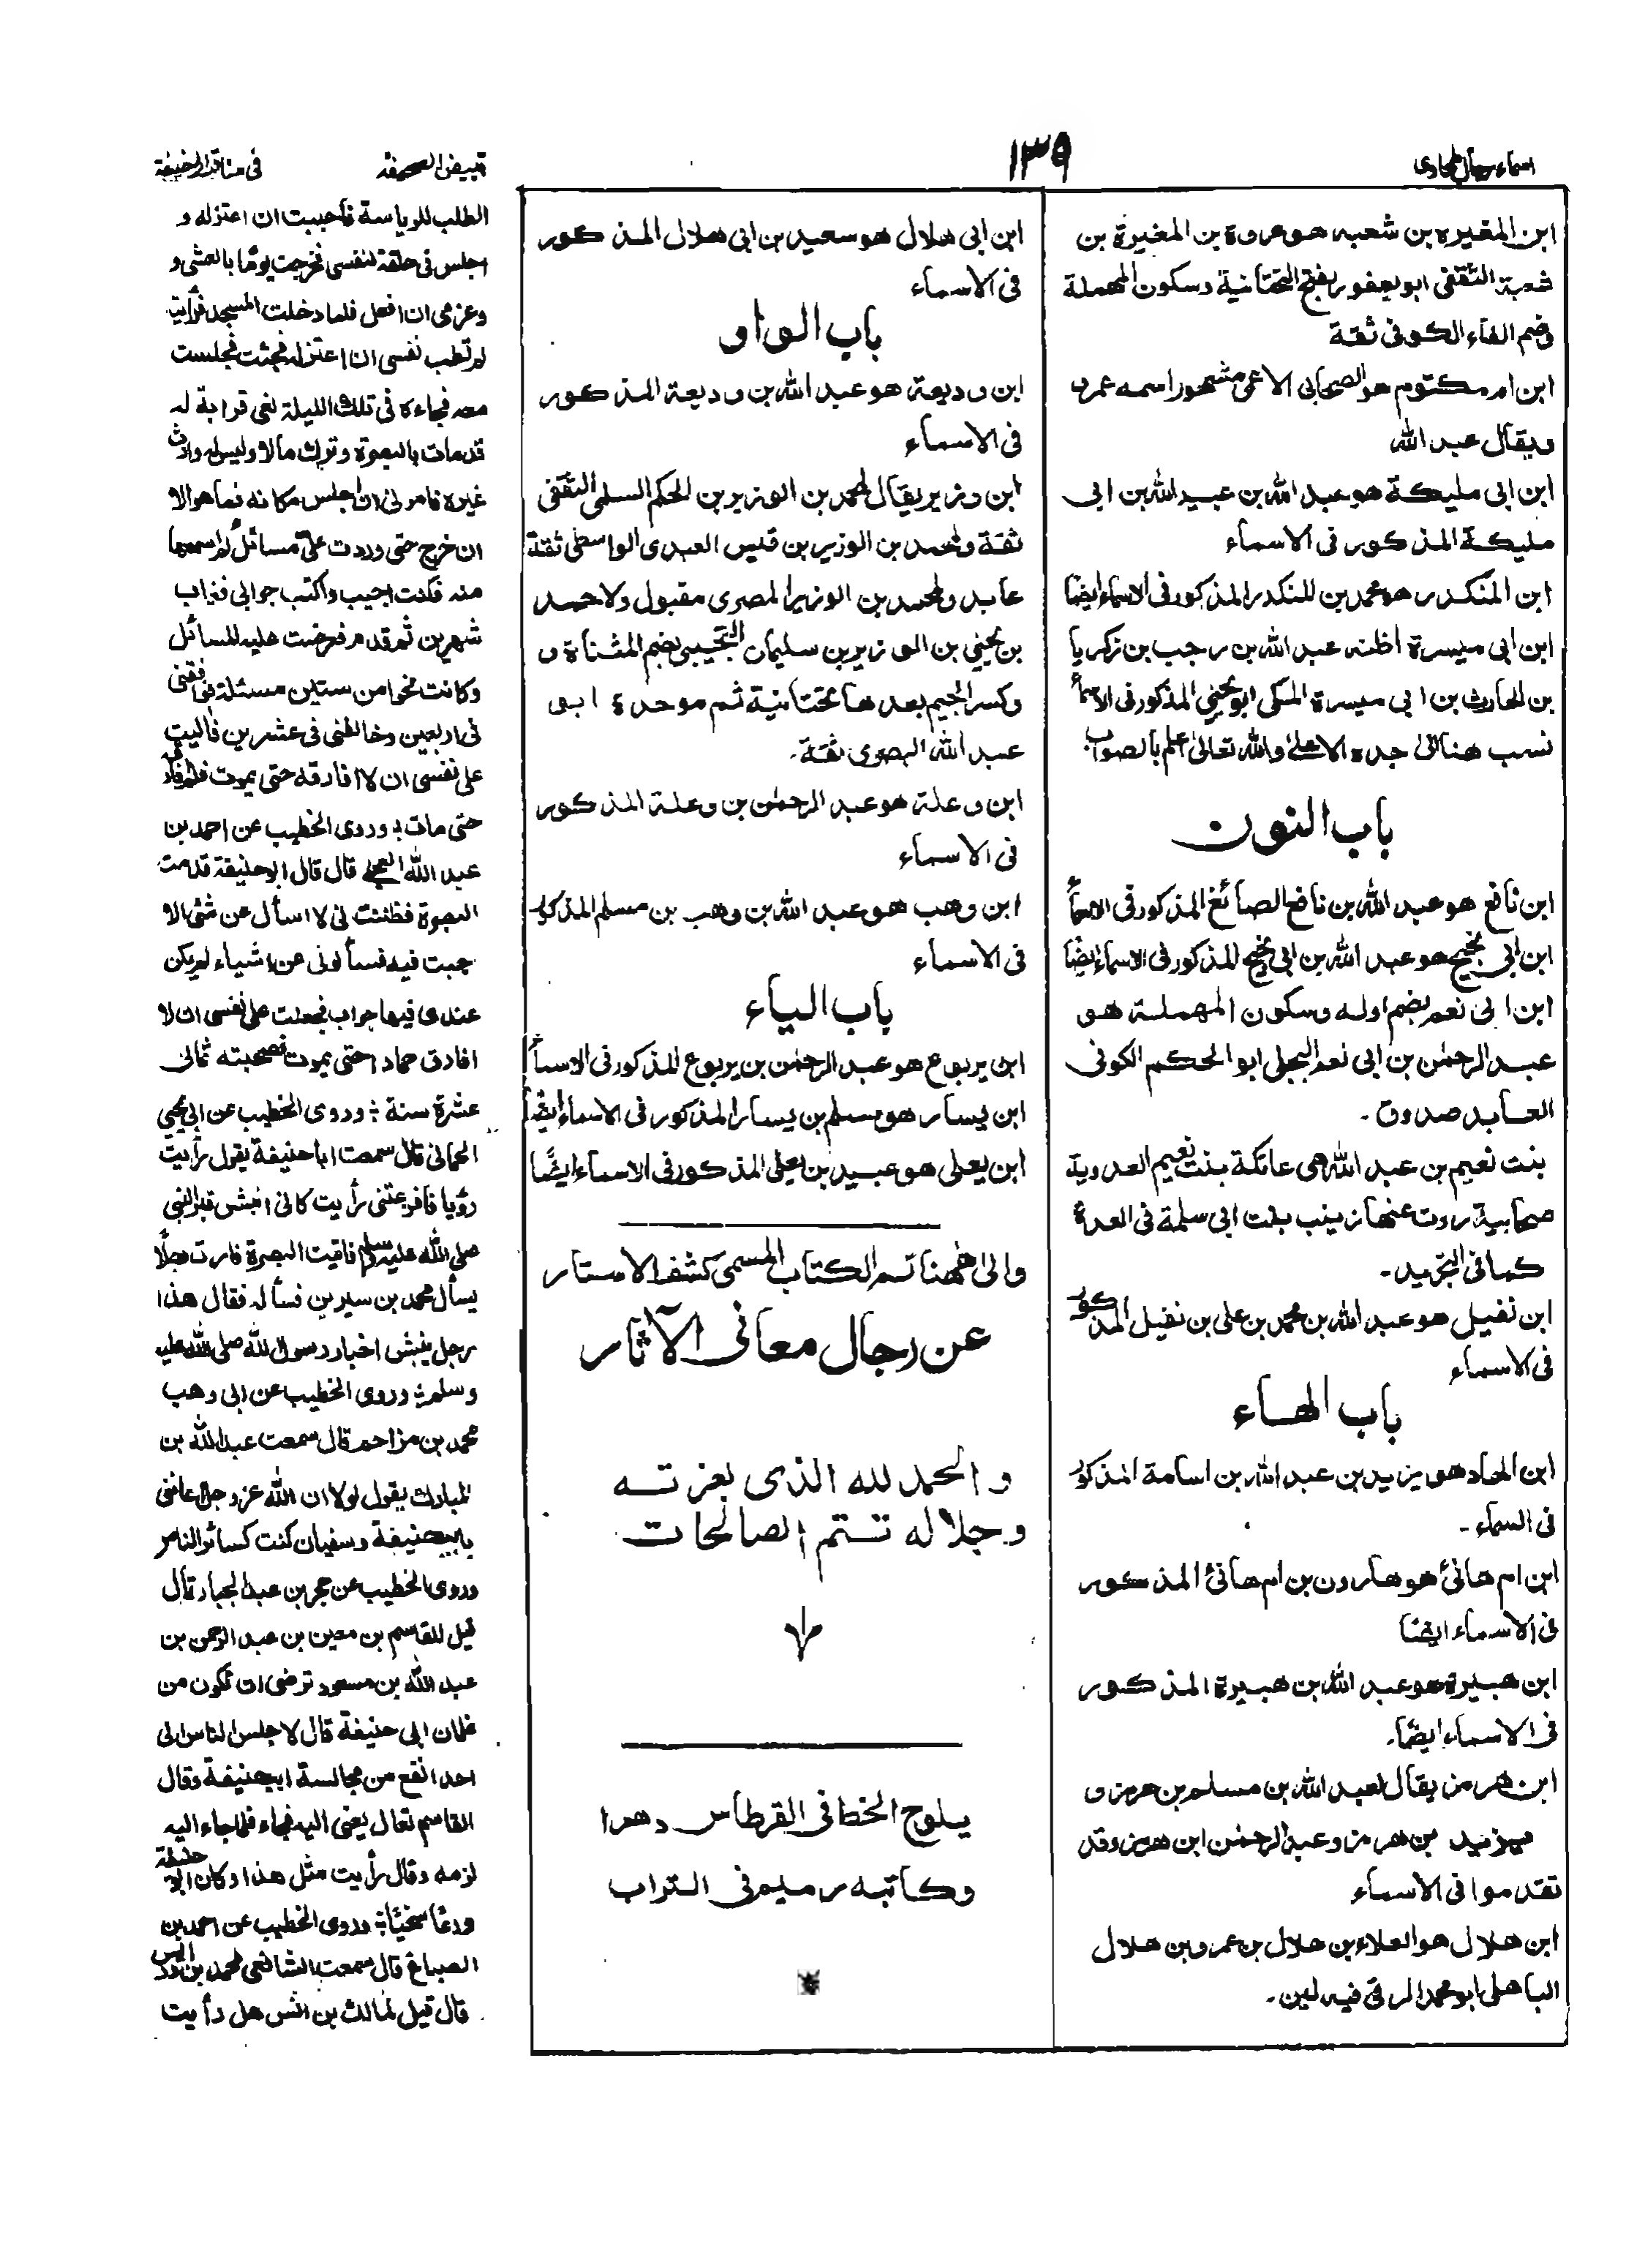 اسماء رجال طحاوی
١٣٩
تبییض الصحیفة
فی مناقب ابی حنیفة
ابن المغیرہ بن شعبه هو عروة بن المغیرة بن
شعبة الثقفی ابو یعفور بفتح التحتانیة وسکون المهملة
وضم الفاء الکوفی ثقة
ابن ام مکتوم هو الصحابی الاعمی مشهور اسمه عمرو
ویقال عبد الله
ابن ابی ملیکة هو عبد الله بن عبید الله بن ابی
ملیکة المذکور فی الاسماء
ابن المنکدر هو محمد بن المنکدر المذکور فی الاسماء ایضا
ابن ابی میسرة اظنه عبد الله بن رجب بن زکریا
بن الحارث بن ابی میسرة المکی ابو یحیی المذکور فی الاسمأ
نسب هنا الی جده الاعلی والله تعالیٰ اعلم بالصواب
باب النون
ابن نافع هو عبد الله بن نافع الصائغ المذکور فی الاسمأ
ابن ابی نجیح هو عبد الله بن ابی نجیح المذکور فی الاسماء ایضا
ابن ابی نعم بضم اوله وسکون المهملة هو
عبد الرحمٰن بن ابی نعم البجلی ابو الحکم الکوفی
العابد صدوق ۔
بنت نعیم بن عبد الله هی عاتکة بنت نعیم العدویة
صحابیة روت عنها زینب بنت ابی سلمة فی العدة
کما فی التجرید ۔
ابن نفیل هو عبد الله بن محمد بن علی بن نفیل المذکور
فی الاسماء
باب الهاء
ابن الهاد هو یزید بن عبد الله بن اسامة المذکور
فی السماء ۔
ابن ام هانئ هو هارون بن ام هانئ المذکور
فی الاسماء ایضا
ابن هبیرة هو عبد الله بن هبیرة المذکور
فی الاسماء ایضا۔
ابن هرمز یقال لعبد الله بن مسلم بن هرمز و
یزید بن هرمز وعبد الرحمٰن ابن هرمز وقد
تقدموا فی الاسماء
ابن هلال هو العلاء بن هلال بن عمرو بن هلال
الباهلی ابو محمد الرقی فیه لین ۔
ابن ابی هلال هو سعید بن ابی هلال المذکور
فی الاسماء
باب الواو
ابن ودیعة هو عبد الله بن ودیعة المذکور
فی الاسماء
ابن وزیر یقال لمحمد بن الوزیر بن الحکم السلمی الثقفی
ثقة ولمحمد بن الوزیر بن قیس العبدی الواسطی ثقة
عابد ولمحمد بن الوزیر المصری مقبول ولاحمد
بن یحیی بن الوزیر بن سلیمان التجیبی بضم المثناة و
وکسر الجیم بعدها تحتانیة ثم موحدة ابی
عبد الله المصری ثقة ۔
ابن وعلة هو عبد الرحمٰن بن وعلة المذکور
فی الاسماء
ابن وهب هو عبد الله بن وهب بن مسلم المذکور
فی الاسماء
باب الیاء
ابن یربوع هو عبد الرحمٰن بن یربوع المذکور فی الاسمأ
ابن یسار هو مسلم بن یسار المذکور فی الاسماء ایضا
ابن یعلی هو عبید بن یعلی المذکور فی الاسماء ایضًا
والی ههنا تم الکتاب المسمی کشف الاستار
عن رجال معانی الآثار
و الحمد لله الذی بعزته
و جلاله تتم الصالحات
یلوح الخط فی القرطاس دهرا
وکاتبه رمیم فی التراب
الطلب للریاسة فأحببت ان اعتزله و
اجلس فی حلقة لنفسی فخرجت یومًا بالعشی و
وعزمی ان افعل فلما دخلت المسجد فرأیته
لم تطب نفسی ان اعتزله فجئت فجلست
معه فجاءه فی تلك اللیلة نعی قرابة له
قد مات بالبصرة وترك مالا ولیس له وارث
غیره فامرنی ان اجلس مکانه فما هو الا
ان خرج حتی وردت علیّ مسائل لم اسمعها
منه فکنت اجیب واکتب جوابی فغاب
شهرین ثم قدم فعرضت علیه المسائل
وکانت نحوا من ستین مسئلة فوافقنی
فی اربعین وخالفنی فی عشرین فآلیت
علی نفسی ان لا افارقه حتی یموت فلم افارقه
حتی مات ؞ وروی الخطیب عن احمد بن
عبد الله العجلی قال قال ابو حنیفة قدمت
البصرة فظننت انی لا اسأل عن شئ الا
جبت فیه فسألونی عن اشیاء لم یکن
عندی فیها جواب فجعلت علی نفسی ان لا
افارق حمادا حتی یموت فصحبته ثمانی
عشرة سنة ؞ وروی الخطیب عن ابی یحیی
الحمانی قال سمعت ابا حنیفة یقول رأیت
رؤیا فافزعتنی رأیت کانی انبش قبر النبی
صلی الله علیه وسلم فاتیت البصرة فامرت رجلًا
یسأل محمد بن سیرین فسأله فقال هذا
رجل ینبش اخبار رسول الله صلی الله علیه
وسلم ؞ وروی الخطیب عن ابی وهب
محمد بن مزاحم قال سمعت عبد الله بن
المبارك یقول لولا ان الله عز وجل اعاننی
بابی حنیفة وسفیان کنت کسائر الناس
وروی الخطیب عن حجر بن عبد الجبار قال
قیل للقاسم بن معین بن عبد الرحمن بن
عبد الله بن مسعود ترضی ان تکون من
غلمان ابی حنیفة قال لا جلس الناس الی
احد انفع من مجالسة ابی حنیفة وقال
القاسم تعال یعنی الیه فجاء فلما جاء الیه
لزمه وقال رأیت مثل هذا وکان ابو حنیفة
ورعا سخیا ؞ وروی الخطیب عن احمد بن
الصباغ قال سمعت الشافعی محمد بن ادریس
قال قیل لمالك بن انس هل رأیت